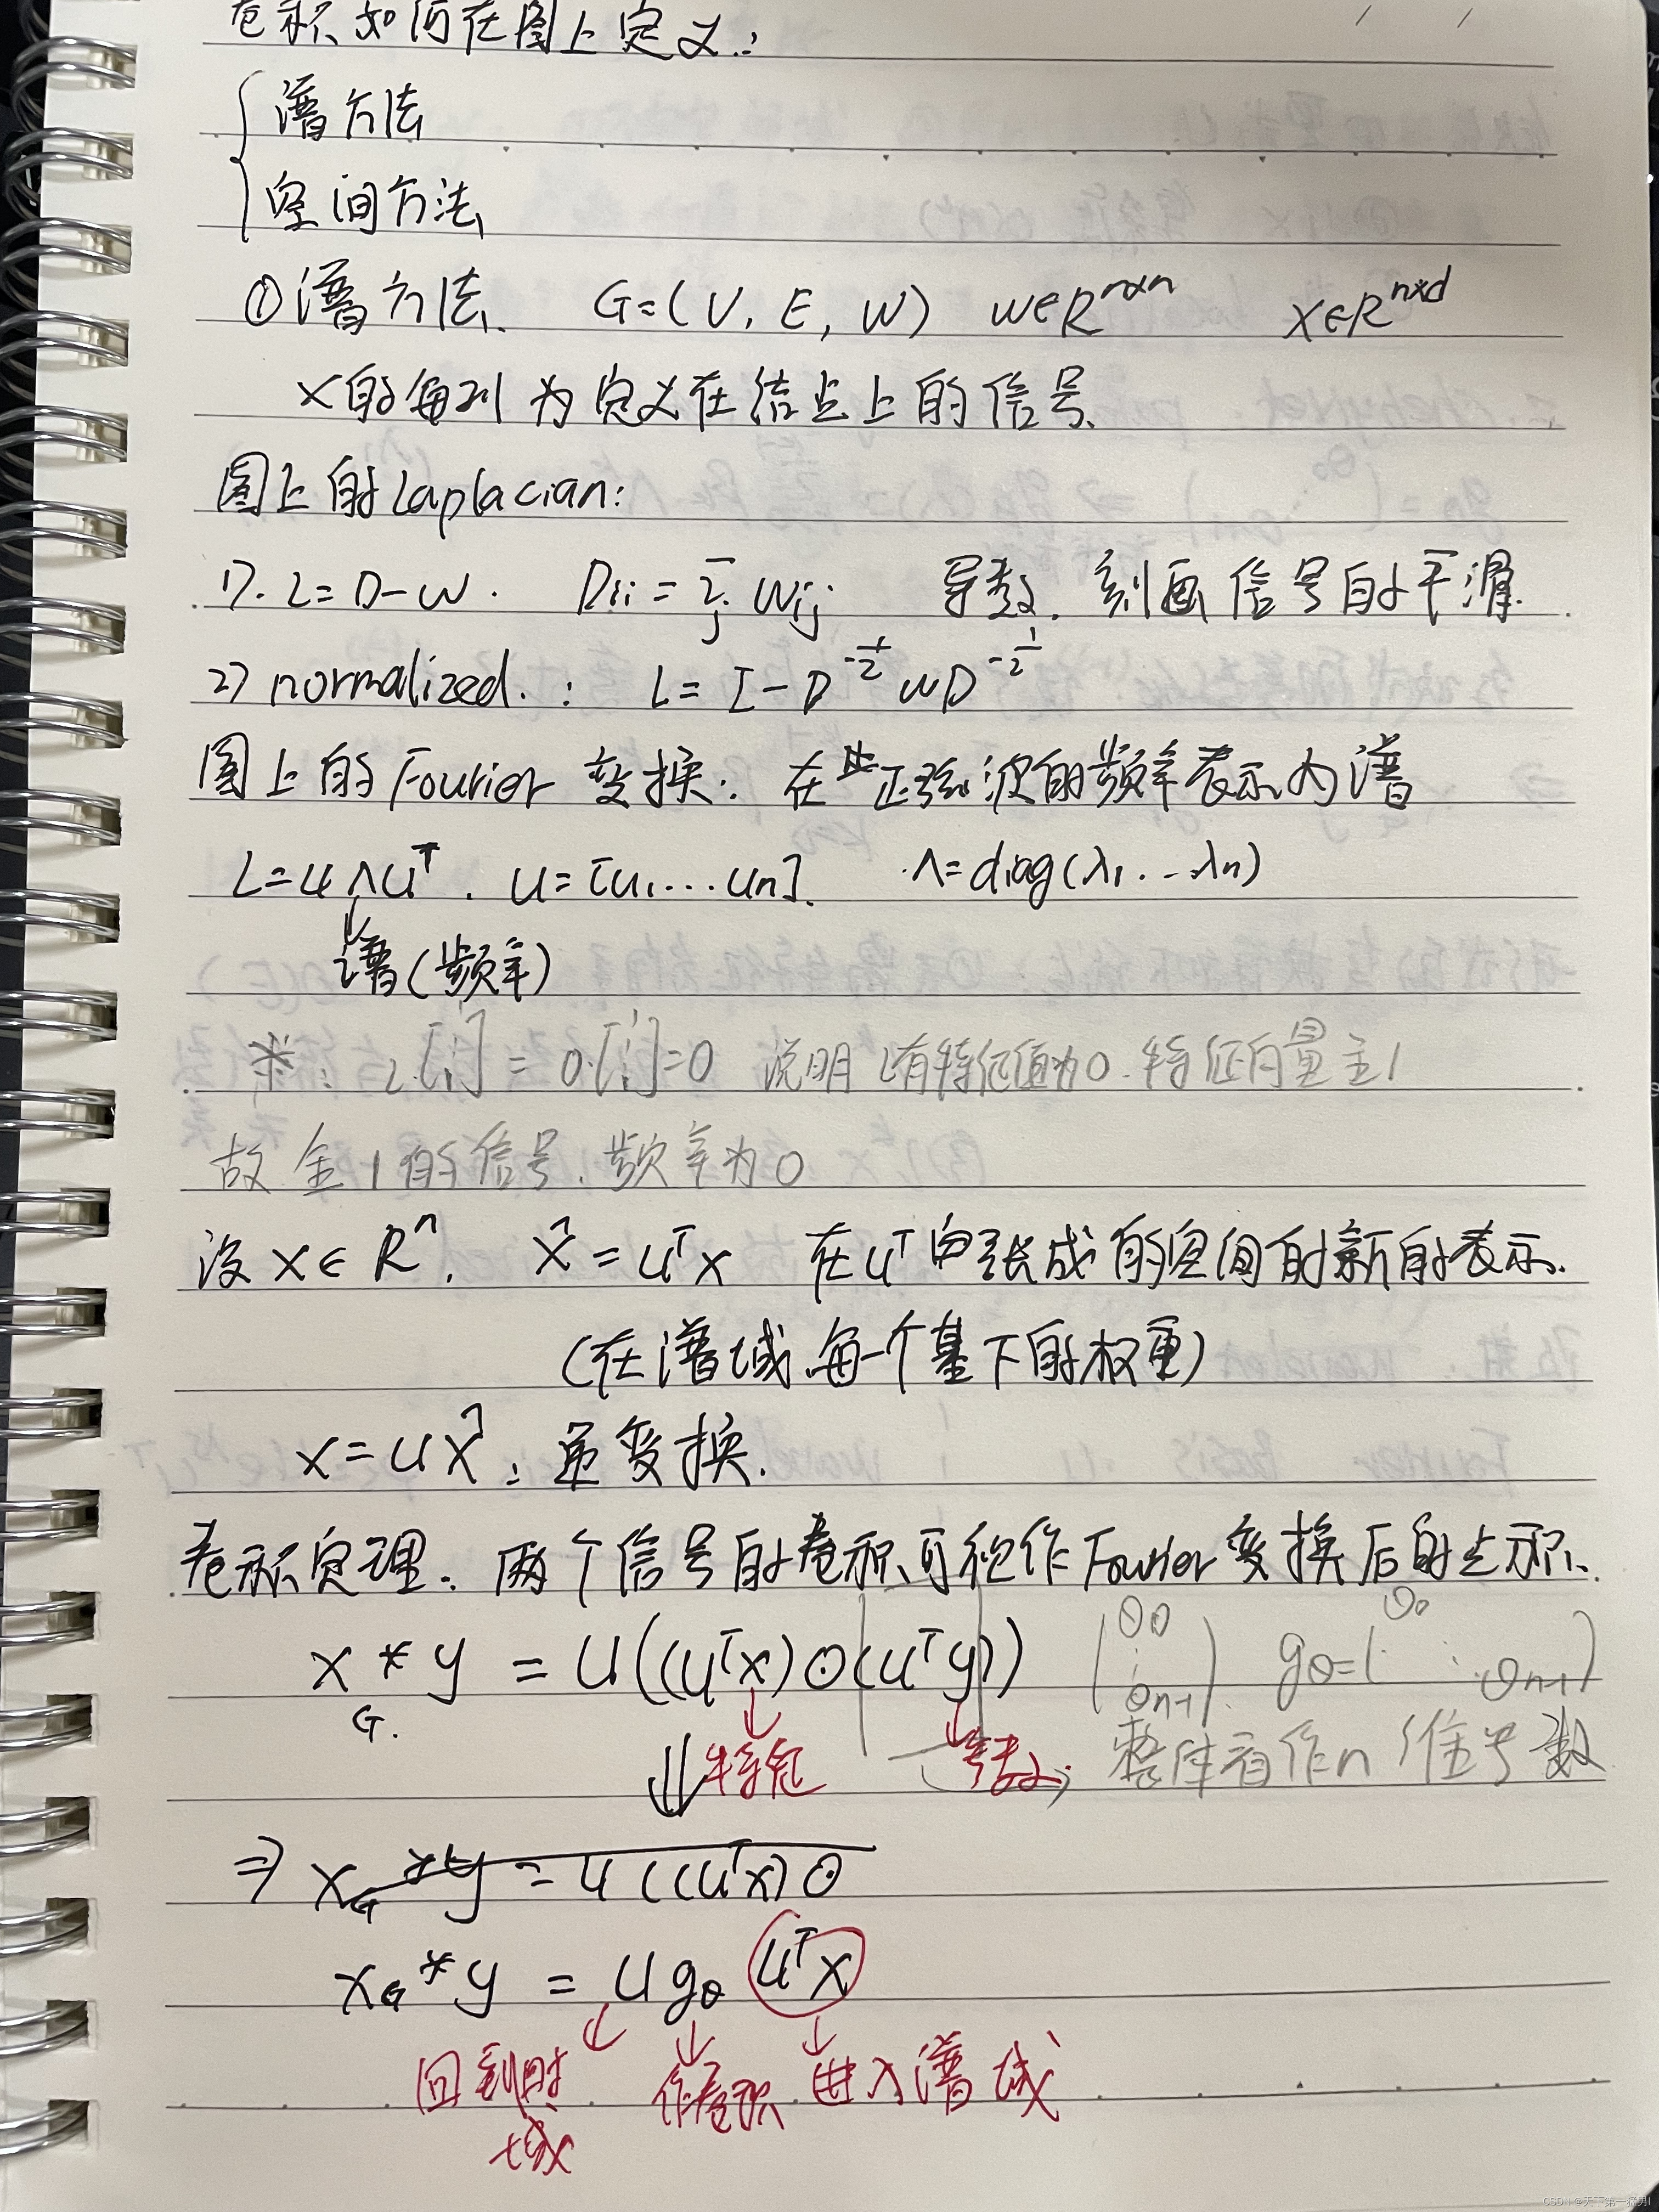 卷积如何在图上定义:
谱方法
空间方法
①谱方法. G=(V, E, W) W∈R^{n×n} X∈R^{n×d}
X的每列为定义在结点上的信号
图上的Laplacian:
1). L=D-W. Dii=Σ_j Wij 导数. 刻画信号的平滑.
2) normalized.: L=I-D^{-1/2}WD^{-1/2}
图上的Fourier变换: 在 正弦波的频率表示为谱
L=UΛU^T. U=[u1...un]. Λ=diag(λ1...λn)
谱(频率)
*: L·[1⋮1]=0·[1⋮1]=0 说明L有特征值为0.特征向量全1
故全1的信号.频率为0
设x∈R^n. x̂=U^Tx 在U^T 张成的空间的新的表示.
(在谱域每一个基下的权重)
x=Ux̂: 逆变换.
卷积定理: 两个信号的卷积可视作Fourier变换后的点积.
x *_G y = U((U^Tx)⊙(U^Ty)) (θ0 ⋮ θn-1). gθ=(θ0 ⋱ θn-1)
特征 参数; 整体看作n维参数
⇒ x_G*y=U((U^Tx)⊙
x_G*y = U gθ U^Tx
回到时域 作卷积 进入谱域
CSDN @天下第一猛男!